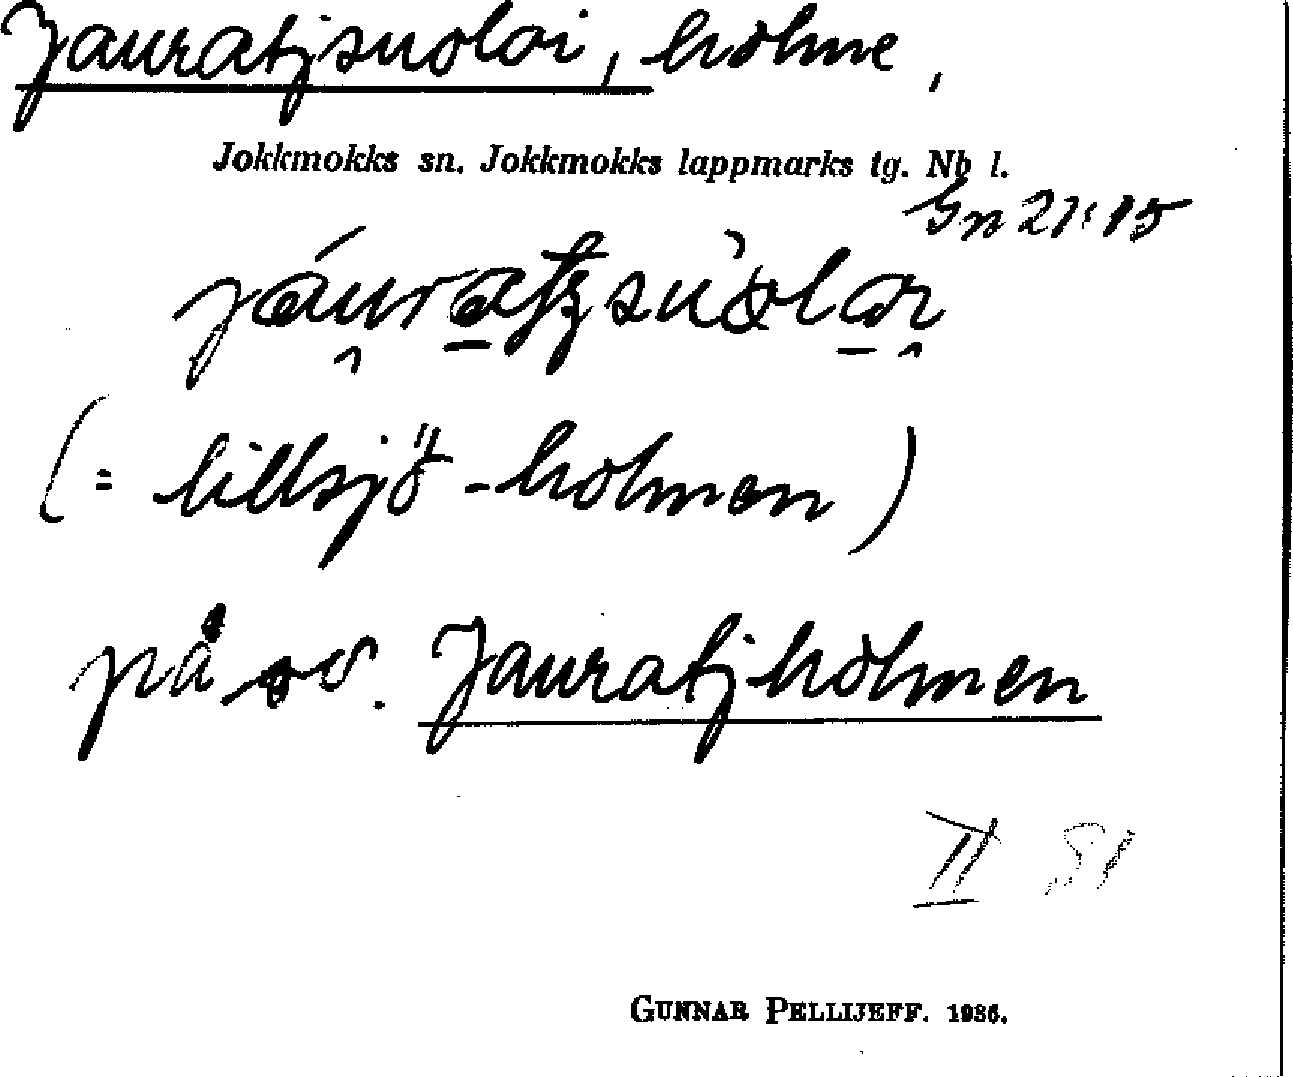 Jauratjsuoloi, holme,
Jokkmokks sn. Jokkmokks lappmarks tg. Nb l.
Gn 27:15
(= lillsjö-holmen)
på sv. Jauratjholmen
II
GUNNAR PELLIJEFF. 1936.